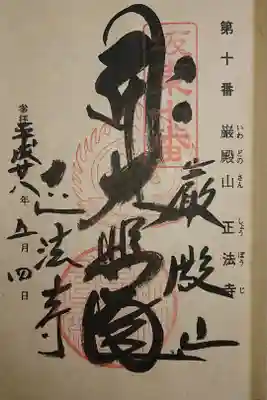 第十番 巌殿山 正法寺
いわどのさん しょうぼうじ
坂東十番
巌殿山
大悲閣
正法寺
参拝 平成廿八年五月四日